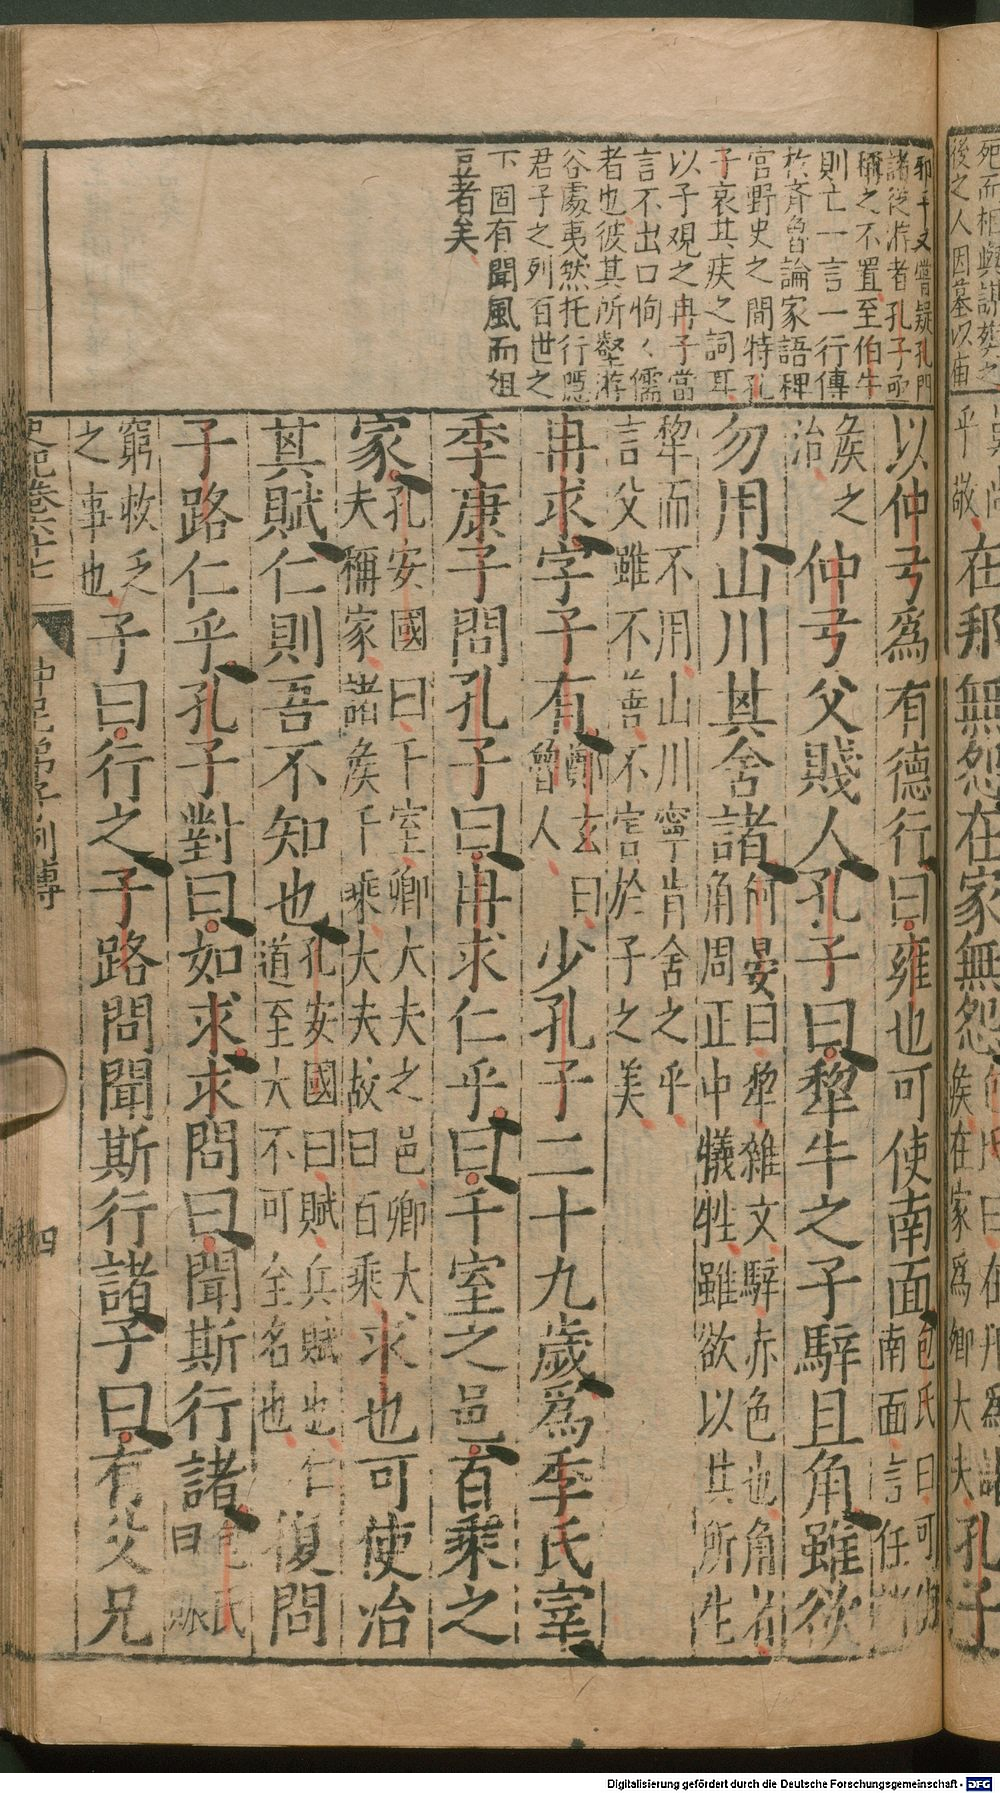 死而相與謀葬之
後之人因墓以庙
乎敬
在邦無怨在家無怨
侯在家爲卿大夫
孔子
又嘗疑孔門
諸從游者孔子亟
稱之不置至伯牛
則亡一言一行傳
於齊魯論家語稗
官野史之間特孔
子哀其疾之詞耳
以子觀之冉子當
言不出口恂〻儒
者也彼其所壑游
谷處夷然托行既
君子之列百世之
下固有聞風而俎
豆者矣
以仲弓爲有德行曰雍也可使南面包氏曰可南面言任
侯之治仲弓父賤人孔子曰犂牛之子騂且角雖欲
勿用山川其舍諸何晏曰犂雜文騂赤色也角者角周正中犧牲雖欲以其所生
犂而不用山川寧肯舍之乎言父雖不善不害於子之美
冉求字子有鄭玄曰魯人少孔子二十九歲爲季氏宰
季康子問孔子曰冉求仁乎曰千室之邑百乘之
家孔安國曰千室卿大夫之邑卿大夫稱家諸侯千乘大夫故曰百乘求也可使治
其賦仁則吾不知也孔安國曰賦兵賦也仁道至大不可全名也復問
子路仁乎孔子對曰如求求問曰聞斯行諸包氏曰賑
窮救乏之事也子曰行之子路問聞斯行諸子曰有父兄
史記卷六十七
仲尼弟子列傳
四
Digitalisierung gefördert durch die Deutsche Forschungsgemeinschaft - DFG